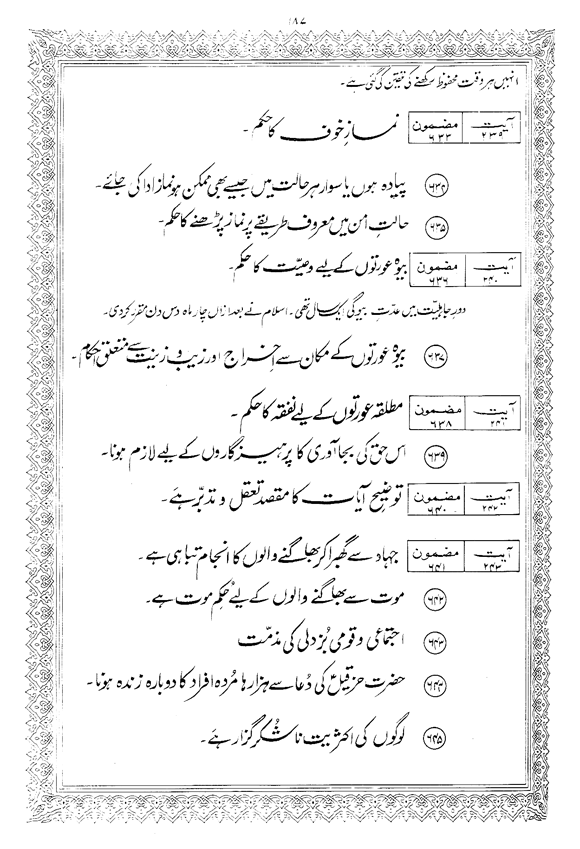 ۱۸۷
انہیں ہر وقت محفوظ رکھنے کی تلقین کی گئی ہے۔
آیت ۲۳۹ مضمون ۶۳۳ نمازِ خوف کا حکم۔
۶۳۴ پیادہ ہوں یا سوار ہر حالت میں جیسے بھی ممکن ہو نماز ادا کی جائے۔
۶۳۵ حالتِ امن میں معروف طریقے پر نماز پڑھنے کا حکم۔
آیت ۲۴۰ مضمون ۶۳۶ بیوہ عورتوں کے لیے وصیت کا حکم۔
دورِ جاہلیت میں عدّتِ بیوگی ایک سال تھی۔ اسلام نے بعد ازاں چار ماہ دس دن مقرر کر دی۔
۶۳۷ بیوہ عورتوں کے مکان سے اِخراج اور زیب و زینت سے متعلق احکام۔
آیت ۲۴۱ مضمون ۶۳۸ مطلقہ عورتوں کے لیے نفقہ کا حکم۔
۶۳۹ اس حق کی بجا آوری کا پرہیزگاروں کے لیے لازم ہونا۔
آیت ۲۴۲ مضمون ۶۴۰ توضیحِ آیات کا مقصد تعقل و تدبّر ہے۔
آیت ۲۴۳ مضمون ۶۴۱ جہاد سے گھبرا کر بھاگنے والوں کا انجام تباہی ہے۔
۶۴۲ موت سے بھاگنے والوں کے لیے حکمِ موت ہے۔
۶۴۳ اجتماعی و قومی بُزدلی کی مذمّت
۶۴۴ حضرت حزقیلؑ کی دُعا سے ہزارہا مُردہ افراد کا دوبارہ زندہ ہونا۔
۶۴۵ لوگوں کی اکثریت ناشُکر گزار ہے۔